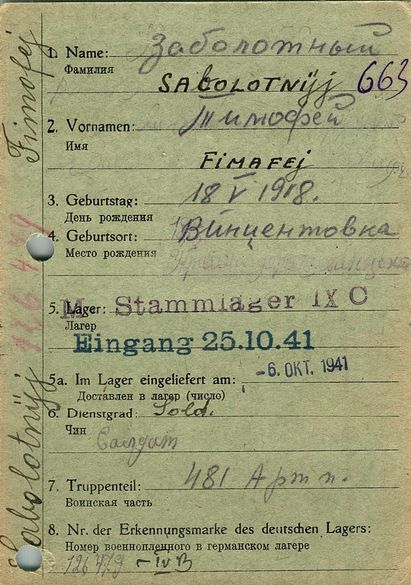 1. Name: Заболотный
Фамилия
SABOLOTNIJJ 663
2. Vornamen: Тимофей
Имя
FIMAFEJ
3. Geburtstag: 18 V 1918.
День рождения
4. Geburtsort: Винцентовка
Место рождения
5. Lager: M Stammlager IX C
Лагер
Eingang 25.10.41
5a. Im Lager eingeliefert am: -6. OKT. 1941
Доставлен в лагер (число)
6. Dienstgrad: Sold.
Чин Салдат
7. Truppenteil: 481 Арт п.
Воинская часть
8. Nr. der Erkennungsmarke des deutschen Lagers:
Номер военнопленного в германском лагере
126479 – IV B
Sabolotnijj Fimofej
126479